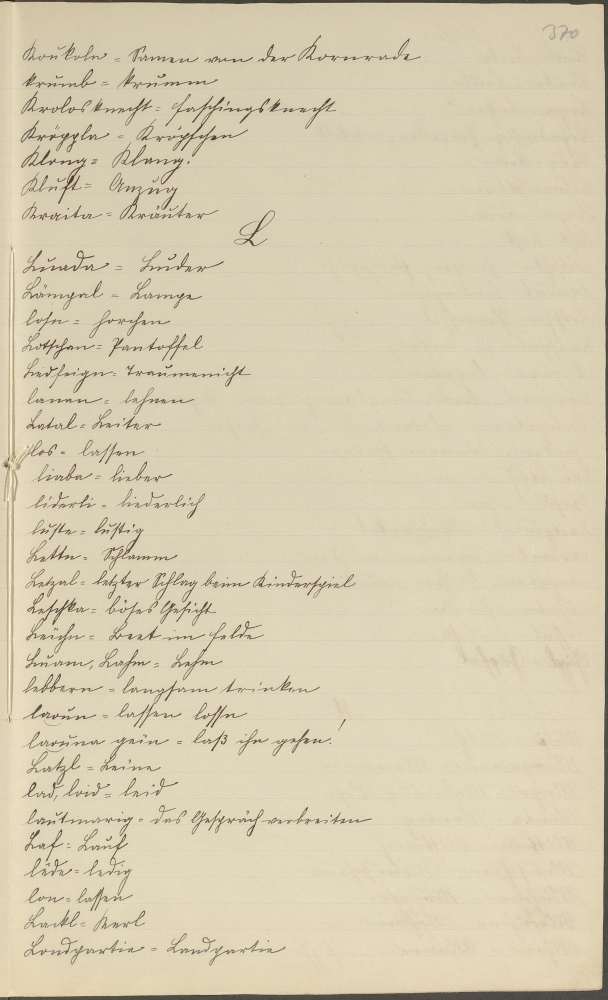 370
Koukoln = Samen von der Kornrade
krumb = krumm
Krolosknecht = Faschingsknecht
Kröppla = Kröpfchen
Klong = Klang.
Kluft = Anzug
Kraita = Kräuter
L
Luada = Luder
Lämpal = Lampe
losn = horchen
Lotschan = Pantoffel
Ledfeign = Traumenicht
lanan = lehnen
Latal = Leiter
los = lassen
liaba = lieber
liderli = liederlich
luste = lustig
Lettn = Schlamm
Letzal = letzter Schlag beim Kinderspiel
Leschka = böses Gesicht
Leichn = Beet im Felde
Luam, Lahm = Lehm
lebbern = langsam trinken
laoun = lassen losse
laouna gein = laß ihn gehen!
Latzl = Leine
lad, loid = leid
lautmarig = das Gespräch verbreiten
Laf = Lauf
lede = ledig
lon = lassen
Lackl = Kerl
Londpartie = Landpartie